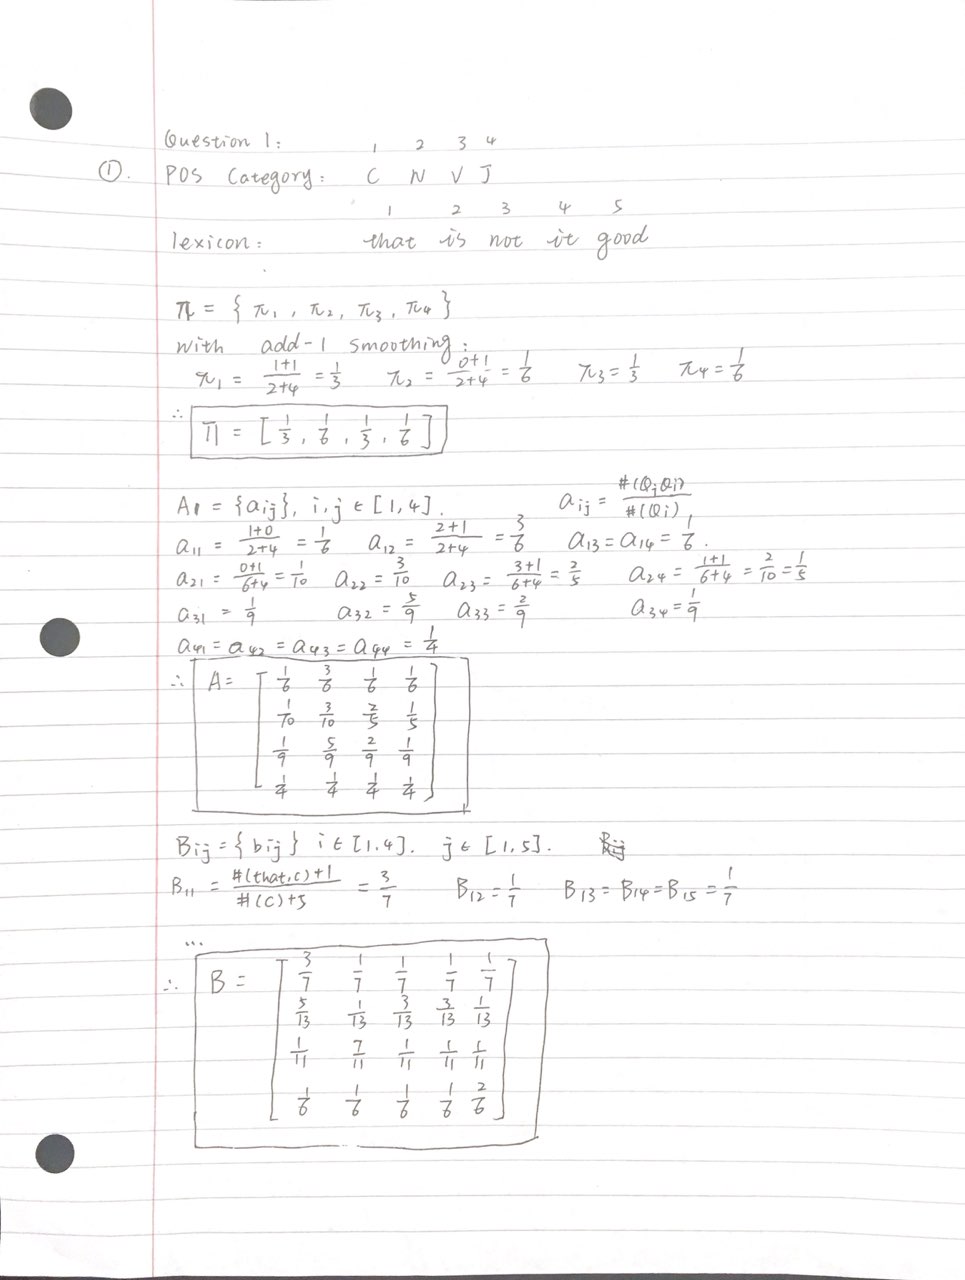 Question 1: 1 2 3 4
①. POS Category: C N V J
1 2 3 4 5
lexicon: that is not it good
π = { π₁, π₂, π₃, π₄ }
with add-1 smoothing:
π₁ = (1+1)/(2+4) = 1/3 π₂ = (0+1)/(2+4) = 1/6 π₃ = 1/3 π₄ = 1/6
∴ Π = [ 1/3, 1/6, 1/3, 1/6 ]
A = {aij}, i, j ∈ [1, 4]. aij = #(QjQi)/#(Qi)
a₁₁ = (1+0)/(2+4) = 1/6 a₁₂ = (2+1)/(2+4) = 3/6 a₁₃ = a₁₄ = 1/6.
a₂₁ = (0+1)/(6+4) = 1/10 a₂₂ = 3/10 a₂₃ = (3+1)/(6+4) = 2/5 a₂₄ = (1+1)/(6+4) = 2/10 = 1/5
a₃₁ = 1/9 a₃₂ = 5/9 a₃₃ = 2/9 a₃₄ = 1/9
a₄₁ = a₄₂ = a₄₃ = a₄₄ = 1/4
∴ A = [ 1/6 3/6 1/6 1/6
1/10 3/10 2/5 1/5
1/9 5/9 2/9 1/9
1/4 1/4 1/4 1/4 ]
Bij = { bij } i ∈ [1,4]. j ∈ [1,5].
B₁₁ = (#(that,c)+1)/(#(C)+5) = 3/7 B₁₂ = 1/7 B₁₃ = B₁₄ = B₁₅ = 1/7
...
∴ B = [ 3/7 1/7 1/7 1/7 1/7
5/13 1/13 3/13 3/13 1/13
1/11 7/11 1/11 1/11 1/11
1/6 1/6 1/6 1/6 2/6 ]